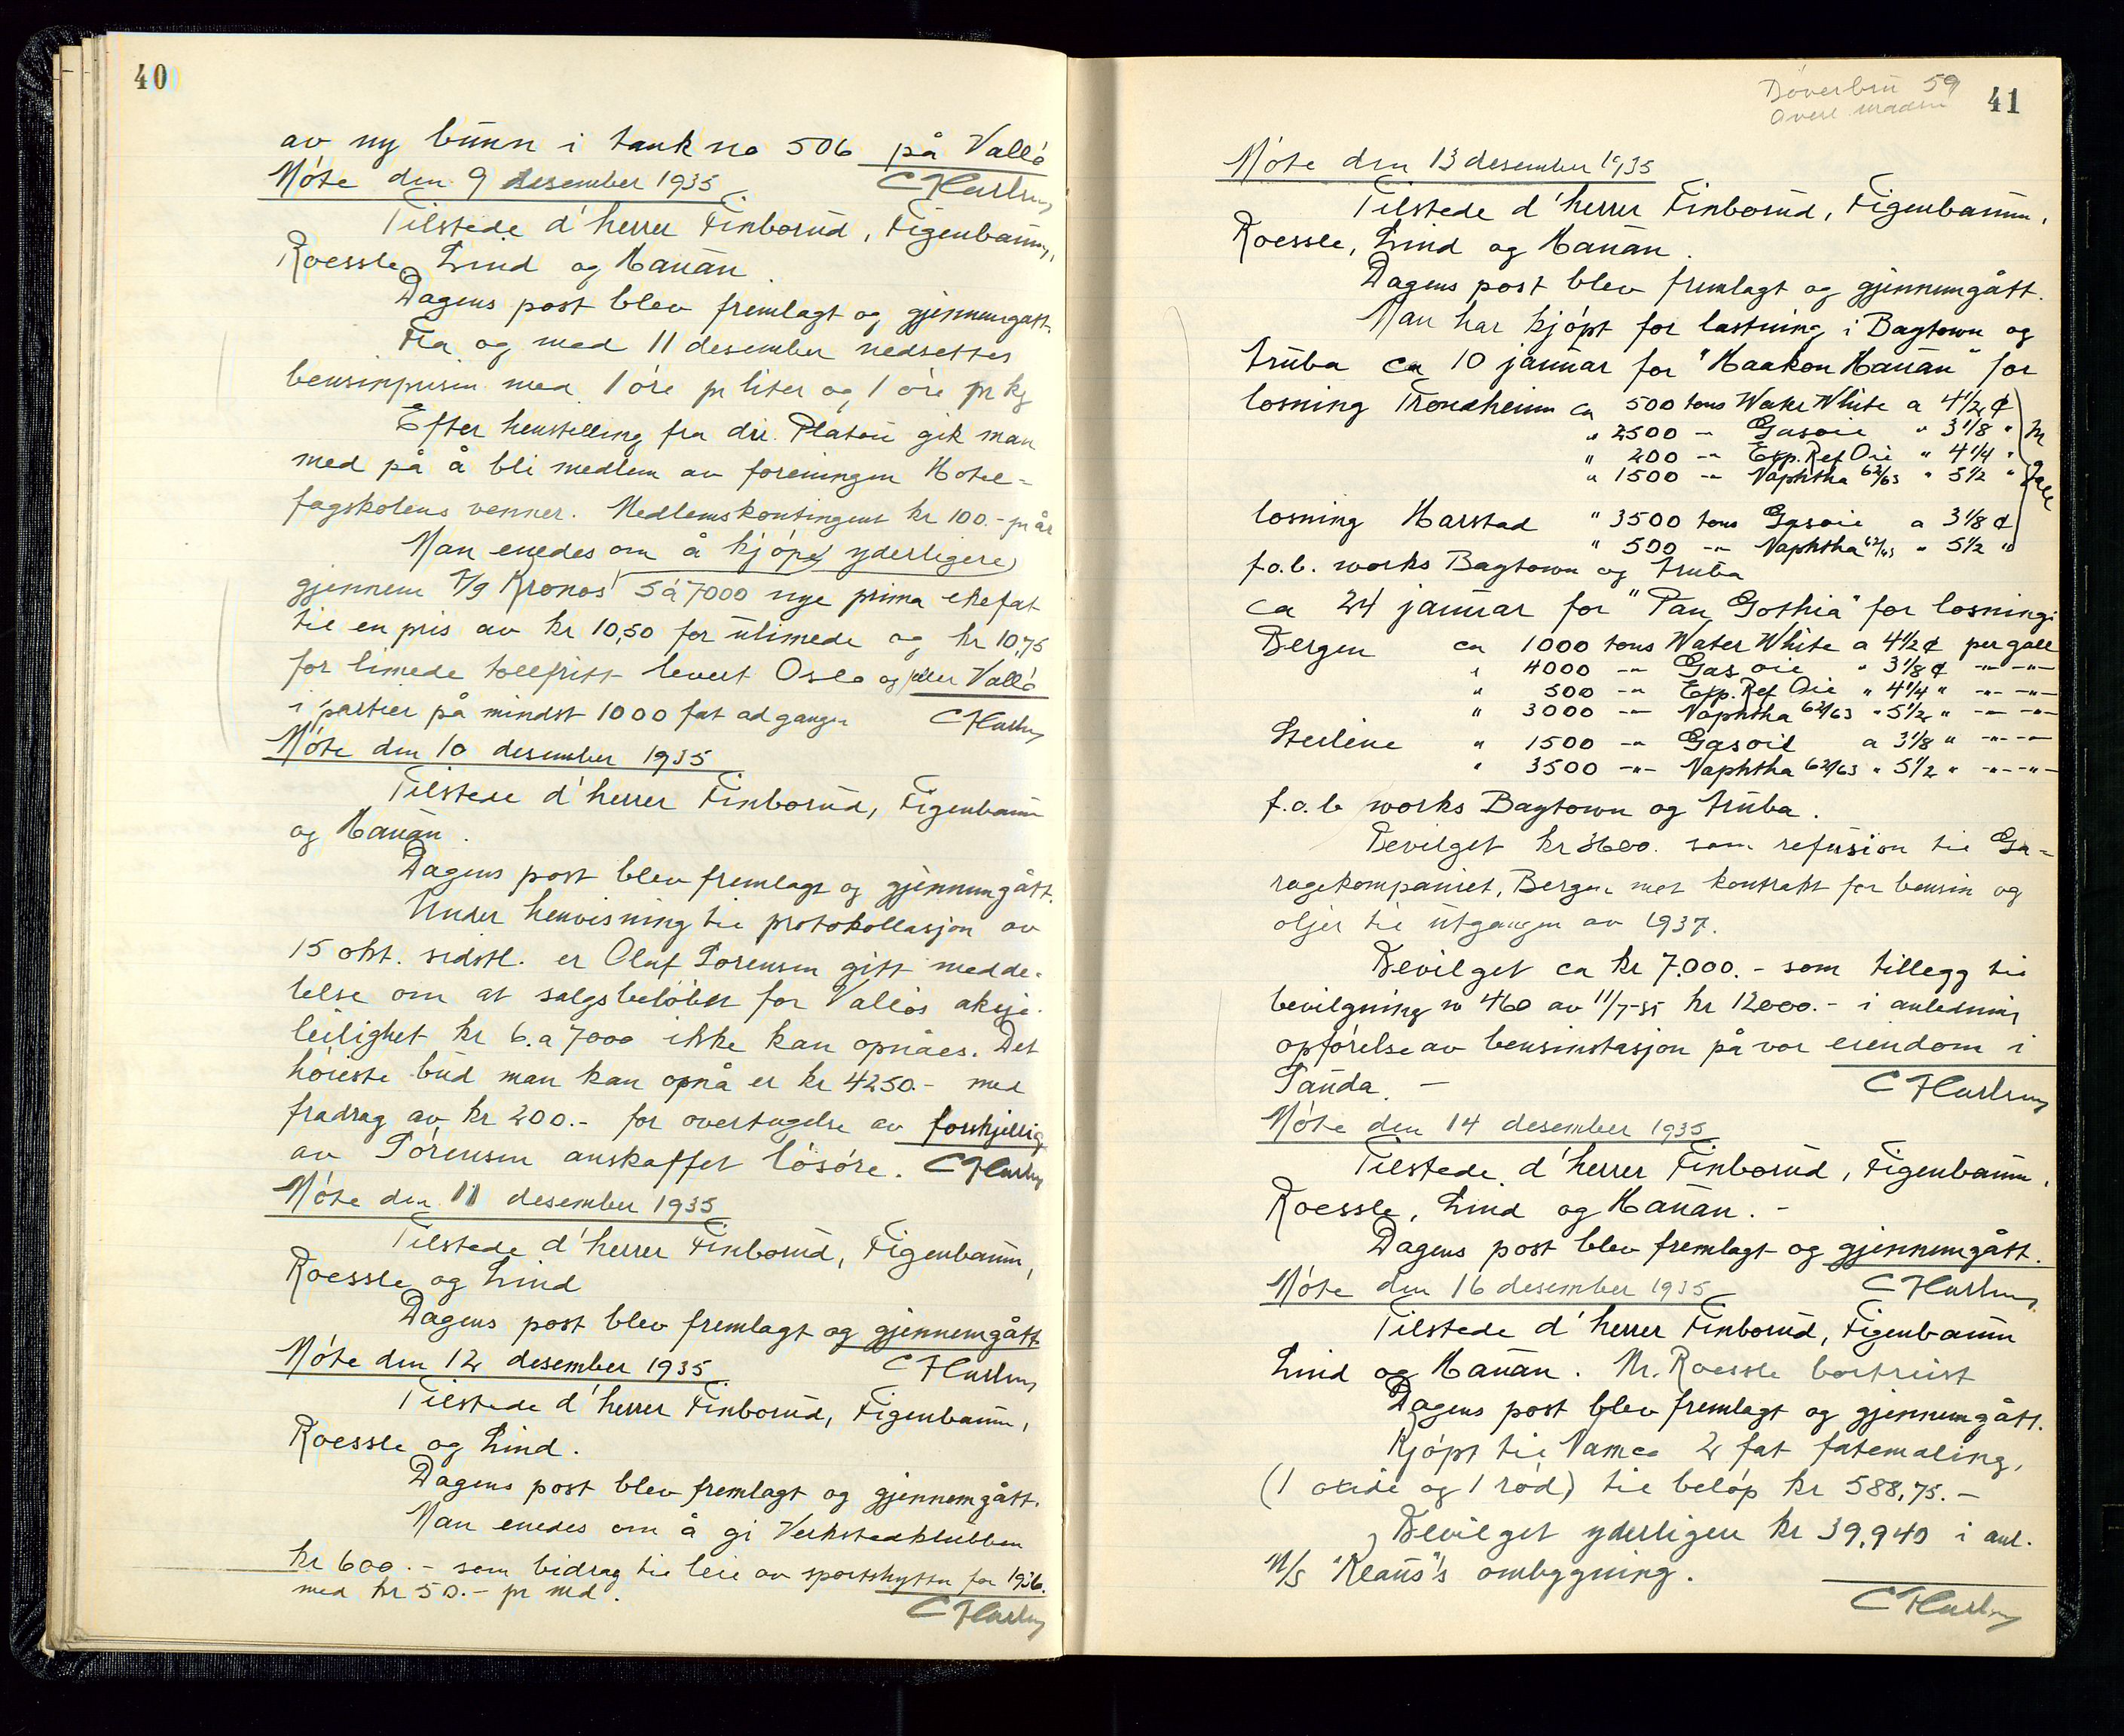 40
av ny bunn i tank no 506 på Vallö
Møte den 9 desember 1935.
Tilstede d'herrer Finborud, Figenbaum,
Roessle, Lind og Hauan.
Dagens post blev fremlagt og gjennemgått.
Fra og med 11 desember nedsettes
bensinprisen med 1 øre pr liter og 1 øre pr kg
Efter henstilling fra dir. Platou gik man
med på å bli medlem av foreningen Hotel-
fagskolens venner. Medlemskontingent kr 100.- pr år
Man enedes om å kjøpe yderligere
gjennem A/S Kronos 5 à 7000 nye prima ekefat
til en pris av kr 10,50 for ulimede og kr 10,75
for limede tollfritt levert Oslo og/eller Vallö
i partier på mindst 1000 fat ad gangen
Møte den 10 desember 1935
Tilstede d'herrer Finborud, Figenbaum
og Hauan.
Dagens post blev fremlagt og gjennemgått.
Under henvisning til protokollasjon av
15 okt. sidstl. er Oluf Sørensen gitt medde-
lelse om at salgsbeløbet for Valløs aksje-
leilighet kr 6.a 7000 ikke kan opnåes. Det
høieste bud man kan opnå er kr 4250.- med
fradrag av kr 200.- for overtagelse av forskjellig
av Sørensen anskaffet løsøre.
Møte den 11 desember 1935
Tilstede d'herrer Finborud, Figenbaum,
Roessle og Lind
Dagens post blev fremlagt og gjennemgått
Møte den 12 desember 1935.
Tilstede d'herrer Finborud, Figenbaum,
Roessle og Lind.
Dagens post blev fremlagt og gjennemgått.
Man enedes om å gi Verkstedklubben
kr 600.- som bidrag til leie av sportshytte for 1936.
med kr 50.- pr md.
59
41
Møte den 13 desember 1935
Tilstede d'herrer Finborud, Figenbaum,
Roessle, Lind og Hauan.
Dagens post blev fremlagt og gjennemgått.
Man har kjøpt for lastning i Bagtown og
Aruba ca 10 januar for "Haakon Hauan" for
losning Trondheim ca 500 tons Water White a 4 1/2 ¢
" 2500 -"- Gasoil " 3 1/8 "
" 200 -"- Exp. Ref Oil " 4 1/4 "
" 1500 -"- Naphtha 62/63 " 5 1/2 "
pr gall
losning Harstad " 3500 tons Gasoil a 3 1/8 ¢
" 500 -"- Naphtha 62/63 " 5 1/2 "
f.o.b. works Bagtown og Aruba
ca 24 januar for "Pan Gothia" for losning i
Bergen ca 1000 tons Water White a 4 1/2 ¢ per gall
" 4000 -"- Gas oil " 3 1/8 ¢ -"- -"-
" 500 -"- Exp. Ref Oil " 4 1/4 " -"- -"-
" 3000 -"- Naphtha 62/63 " 5 1/2 " -"- -"-
Steilene " 1500 -"- Gasoil a 3 1/8 " -"- -"-
" 3500 -"- Naphtha 62/63 " 5 1/2 " -"- -"-
f.o.b works Bagtown og Aruba.
Bevilget kr 3600. som refusion til Ga-
ragekompaniet, Bergen mot kontrakt for bensin og
oljer til utgangen av 1937.
Bevilget ca kr 7.000.- som tillegg til
bevilgning no 460 av 11/7-35 kr 12000.- i anledning
opførelse av bensinstasjon på vor eiendom i
Sauda. -
Møte den 14 desember 1935
Tilstede d'herrer Finborud, Figenbaum,
Roessle, Lind og Hauan. -
Dagens post blev fremlagt og gjennemgått.
Møte den 16 desember 1935
Tilstede d'herrer Finborud, Figenbaum
Lind og Hauan. Mr. Roessle bortreist
Dagens post blev fremlagt og gjennemgått.
Kjøpt til Namco 2 fat fatemaling,
(1 oxide og 1 rød) til beløp kr 588,75.-
Bevilget yderligere kr 39,940 i anl.
M/S "Klaus"'s ombygning.